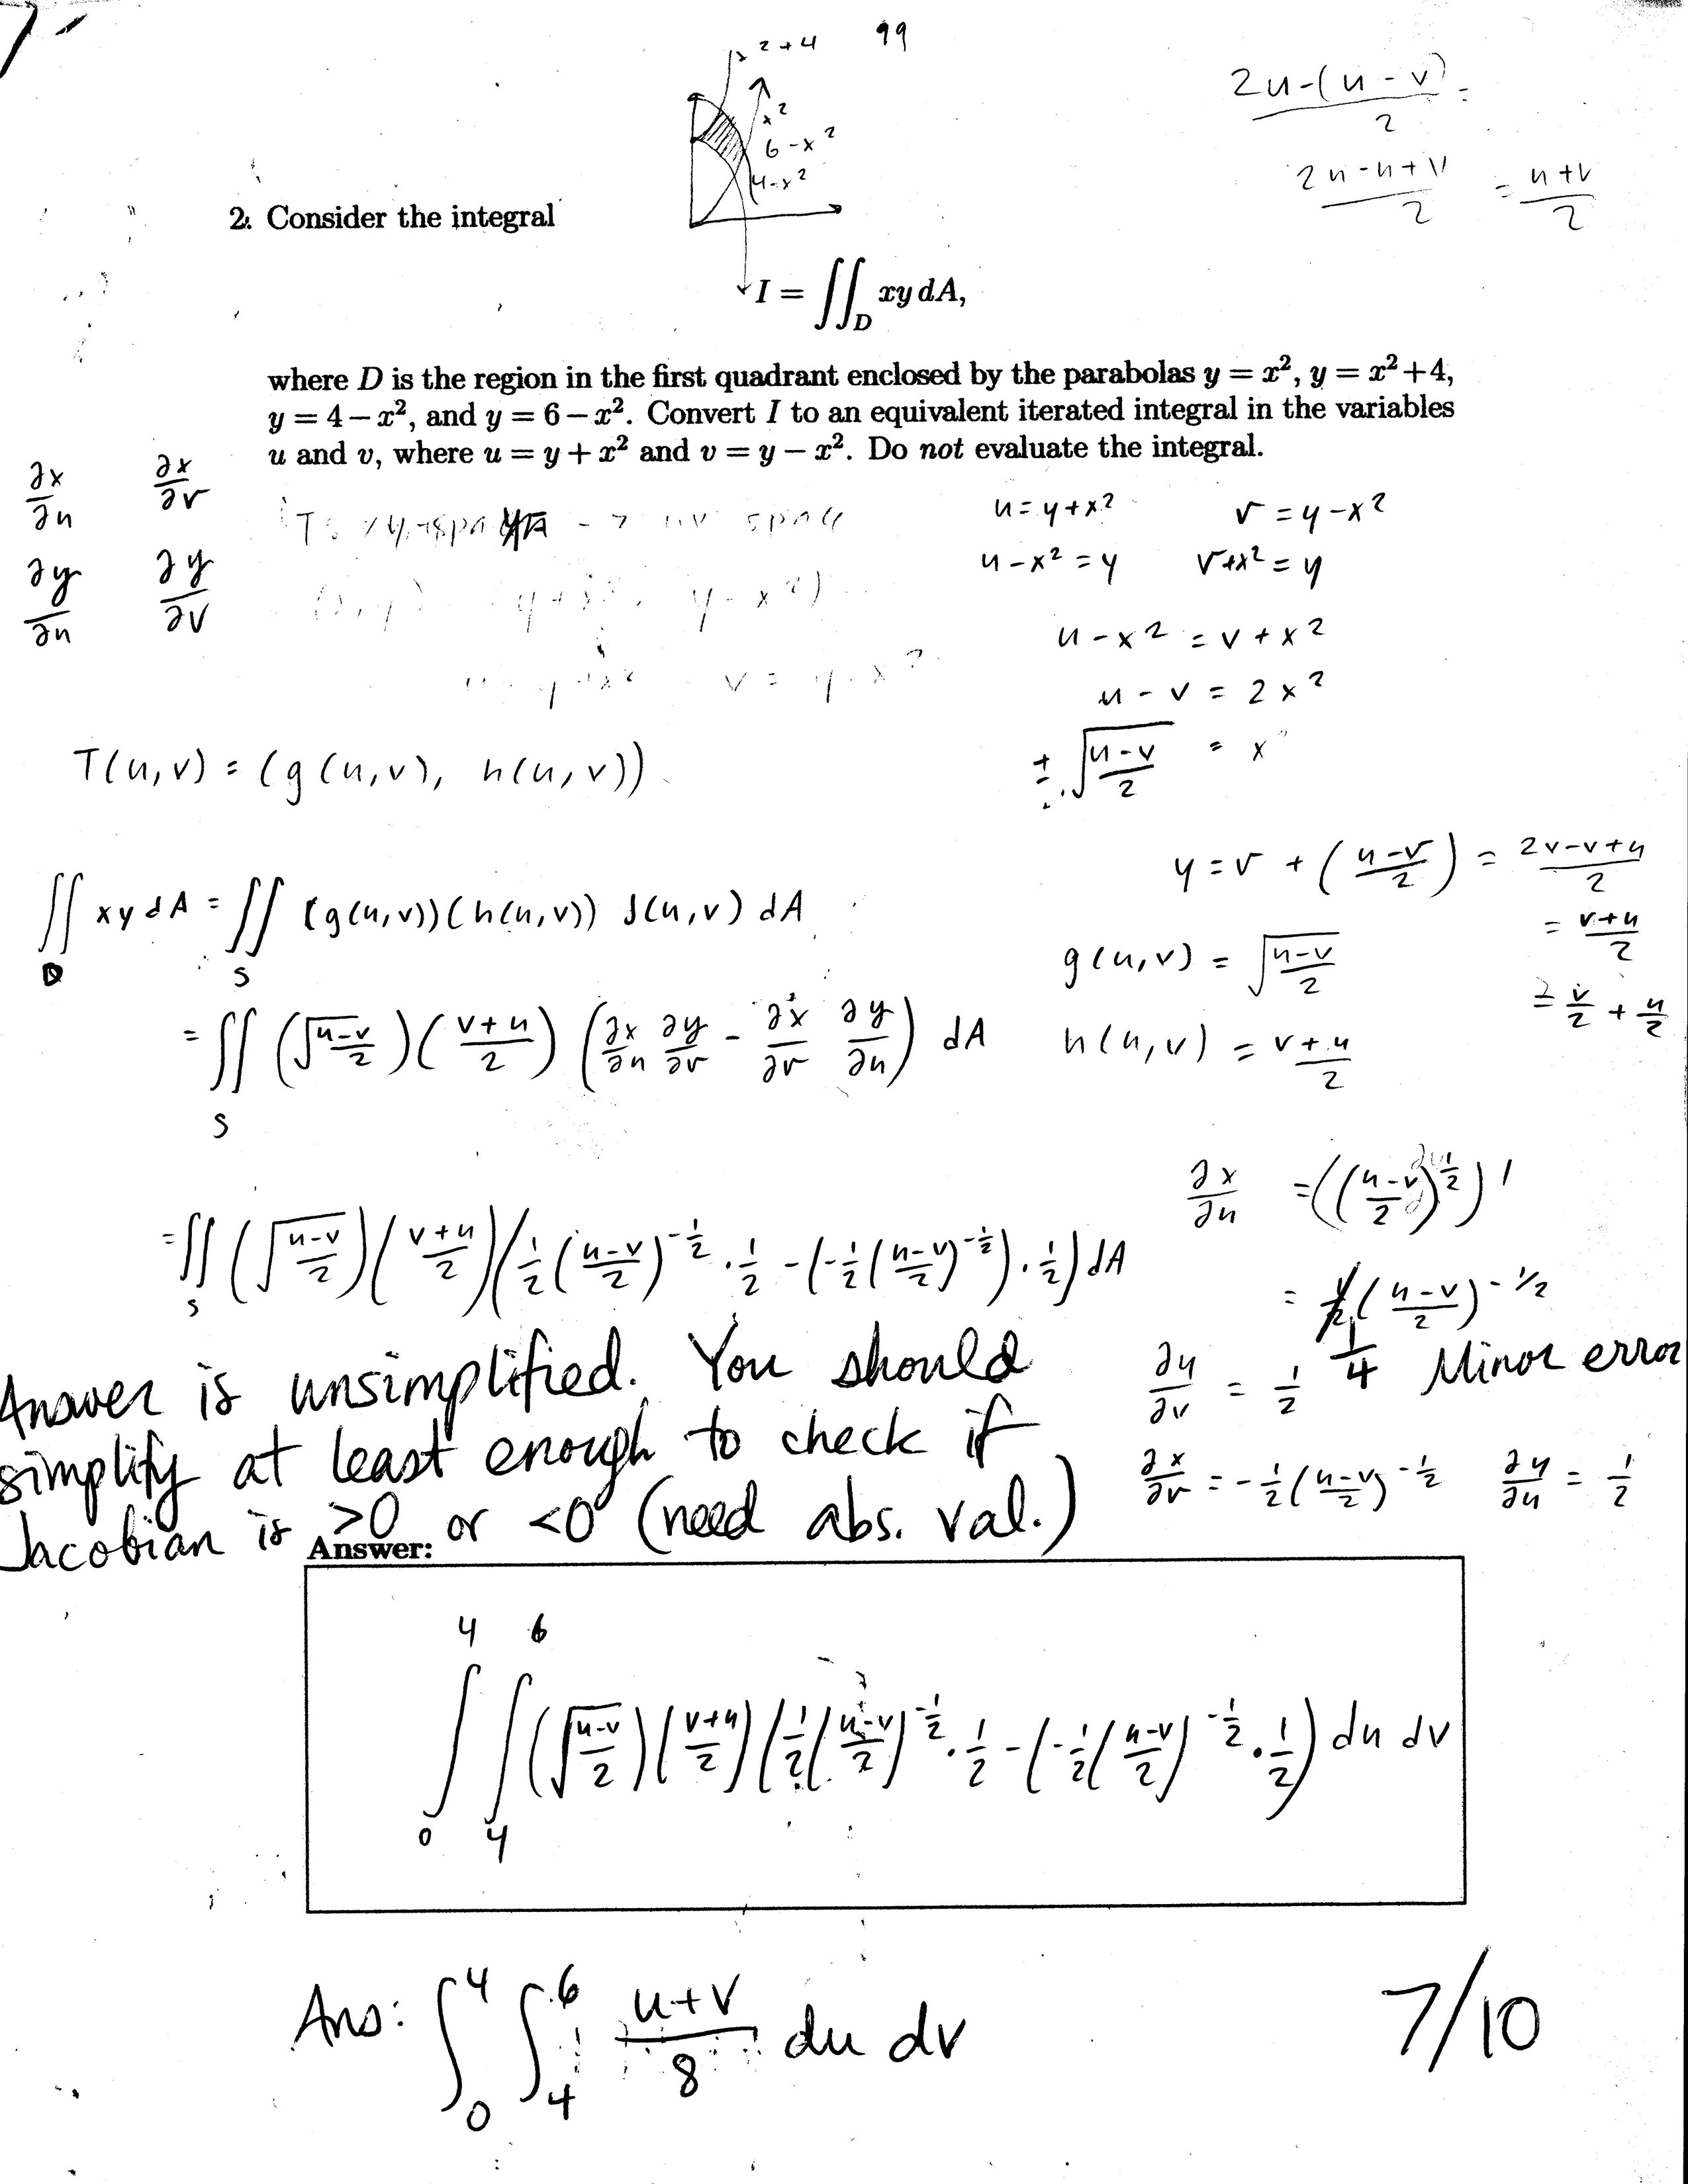 7-
x²+4 99
x²
6-x²
4-x²
2u-(u-v) =
2
2u-u+v = u+v
2 2
2. Consider the integral
I = ∬_D xy dA,
where D is the region in the first quadrant enclosed by the parabolas y = x², y = x²+4,
y = 4 − x², and y = 6 − x². Convert I to an equivalent iterated integral in the variables
u and v, where u = y + x² and v = y − x². Do not evaluate the integral.
∂x/∂u ∂x/∂v
∂y/∂u ∂y/∂v
u = y+x² v = y-x²
u-x² = y v+x² = y
u-x² = v+x²
u-v = 2x²
± √((u-v)/2) = x
T(u,v) = (g(u,v), h(u,v))
y = v + ((u-v)/2) = (2v-v+u)/2
= (v+u)/2
= v/2 + u/2
∬_D xy dA = ∬_S (g(u,v))(h(u,v)) J(u,v) dA
g(u,v) = √((u-v)/2)
= ∬_S (√((u-v)/2))((v+u)/2)(∂x/∂u ∂y/∂v - ∂x/∂v ∂y/∂u) dA
h(u,v) = (v+u)/2
∂x/∂u = (((u-v)/2)^(1/2))'
= ∬_S (√((u-v)/2))((v+u)/2)(1/2((u-v)/2)^(-1/2) · 1/2 - (-1/2((u-v)/2)^(-1/2)) · 1/2) dA
= 1/2((u-v)/2)^(-1/2)
1/4 Minor error
∂y/∂v = 1/2
∂x/∂v = -1/2((u-v)/2)^(-1/2) ∂y/∂u = 1/2
Answer is unsimplified. You should
simplify at least enough to check if
Jacobian is >0 or <0 (need abs. val.)
Answer:
∫_0^4 ∫_4^6 (√((u-v)/2))((v+u)/2)(1/2((u-v)/2)^(-1/2) · 1/2 - (-1/2((u-v)/2)^(-1/2) · 1/2) du dv
Ans: ∫_0^4 ∫_4^6 (u+v)/8 du dv
7/10